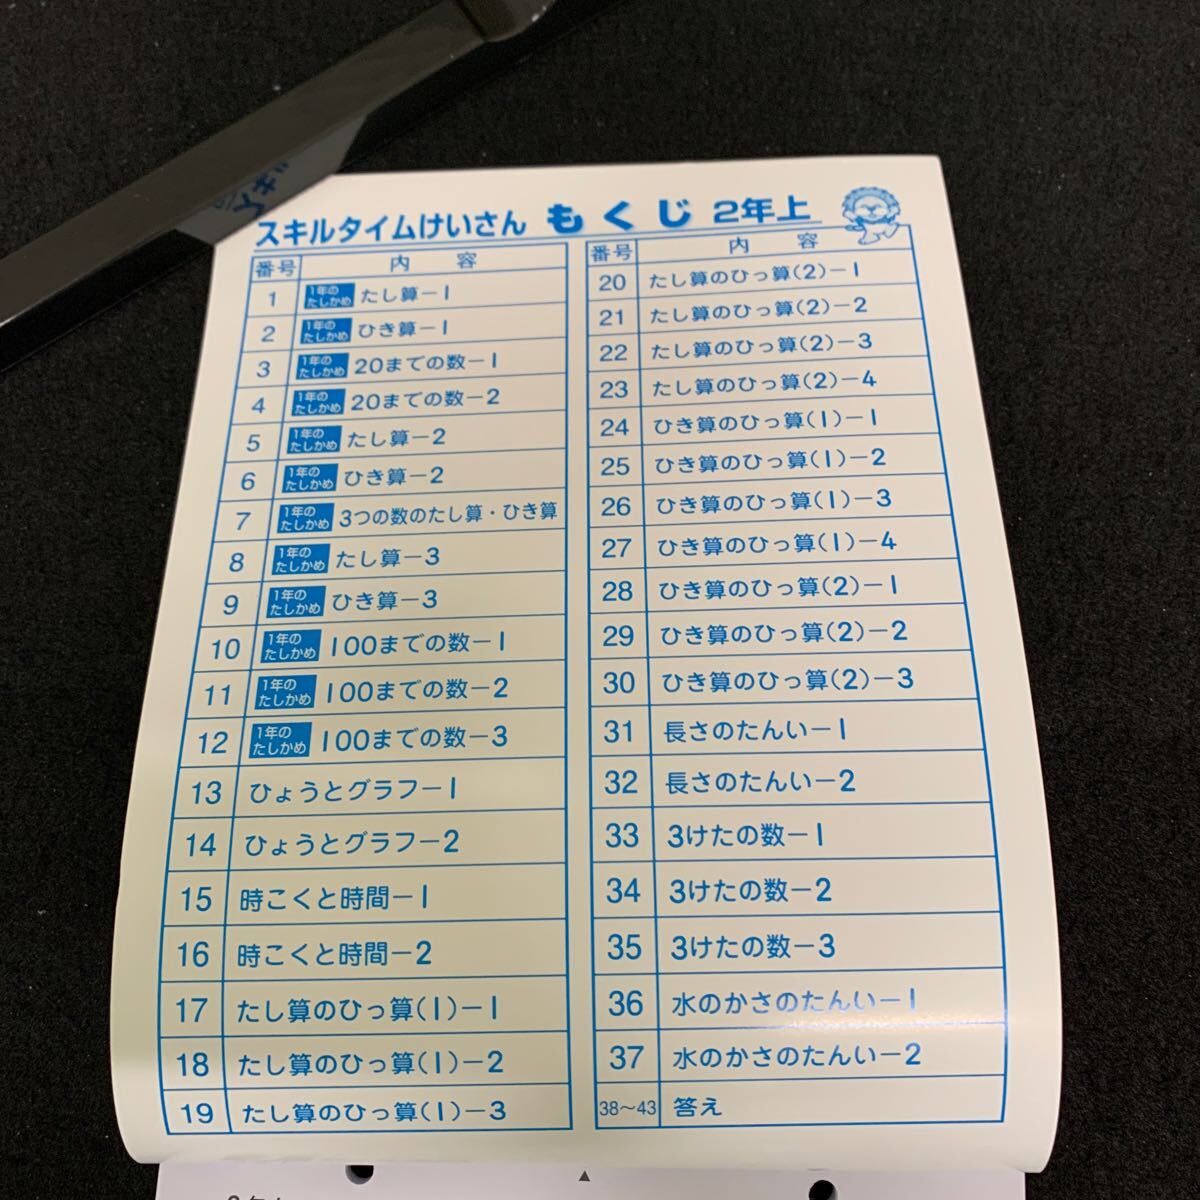 スキルタイムけいさん もくじ 2年上
番号 内容
1 1年のたしかめ たし算-1
2 1年のたしかめ ひき算-1
3 1年のたしかめ 20までの数-1
4 1年のたしかめ 20までの数-2
5 1年のたしかめ たし算-2
6 1年のたしかめ ひき算-2
7 1年のたしかめ 3つの数のたし算・ひき算
8 1年のたしかめ たし算-3
9 1年のたしかめ ひき算-3
10 1年のたしかめ 100までの数-1
11 1年のたしかめ 100までの数-2
12 1年のたしかめ 100までの数-3
13 ひょうとグラフ-1
14 ひょうとグラフ-2
15 時こくと時間-1
16 時こくと時間-2
17 たし算のひっ算(1)-1
18 たし算のひっ算(1)-2
19 たし算のひっ算(1)-3
番号 内容
20 たし算のひっ算(2)-1
21 たし算のひっ算(2)-2
22 たし算のひっ算(2)-3
23 たし算のひっ算(2)-4
24 ひき算のひっ算(1)-1
25 ひき算のひっ算(1)-2
26 ひき算のひっ算(1)-3
27 ひき算のひっ算(1)-4
28 ひき算のひっ算(2)-1
29 ひき算のひっ算(2)-2
30 ひき算のひっ算(2)-3
31 長さのたんい-1
32 長さのたんい-2
33 3けたの数-1
34 3けたの数-2
35 3けたの数-3
36 水のかさのたんい-1
37 水のかさのたんい-2
38〜43 答え